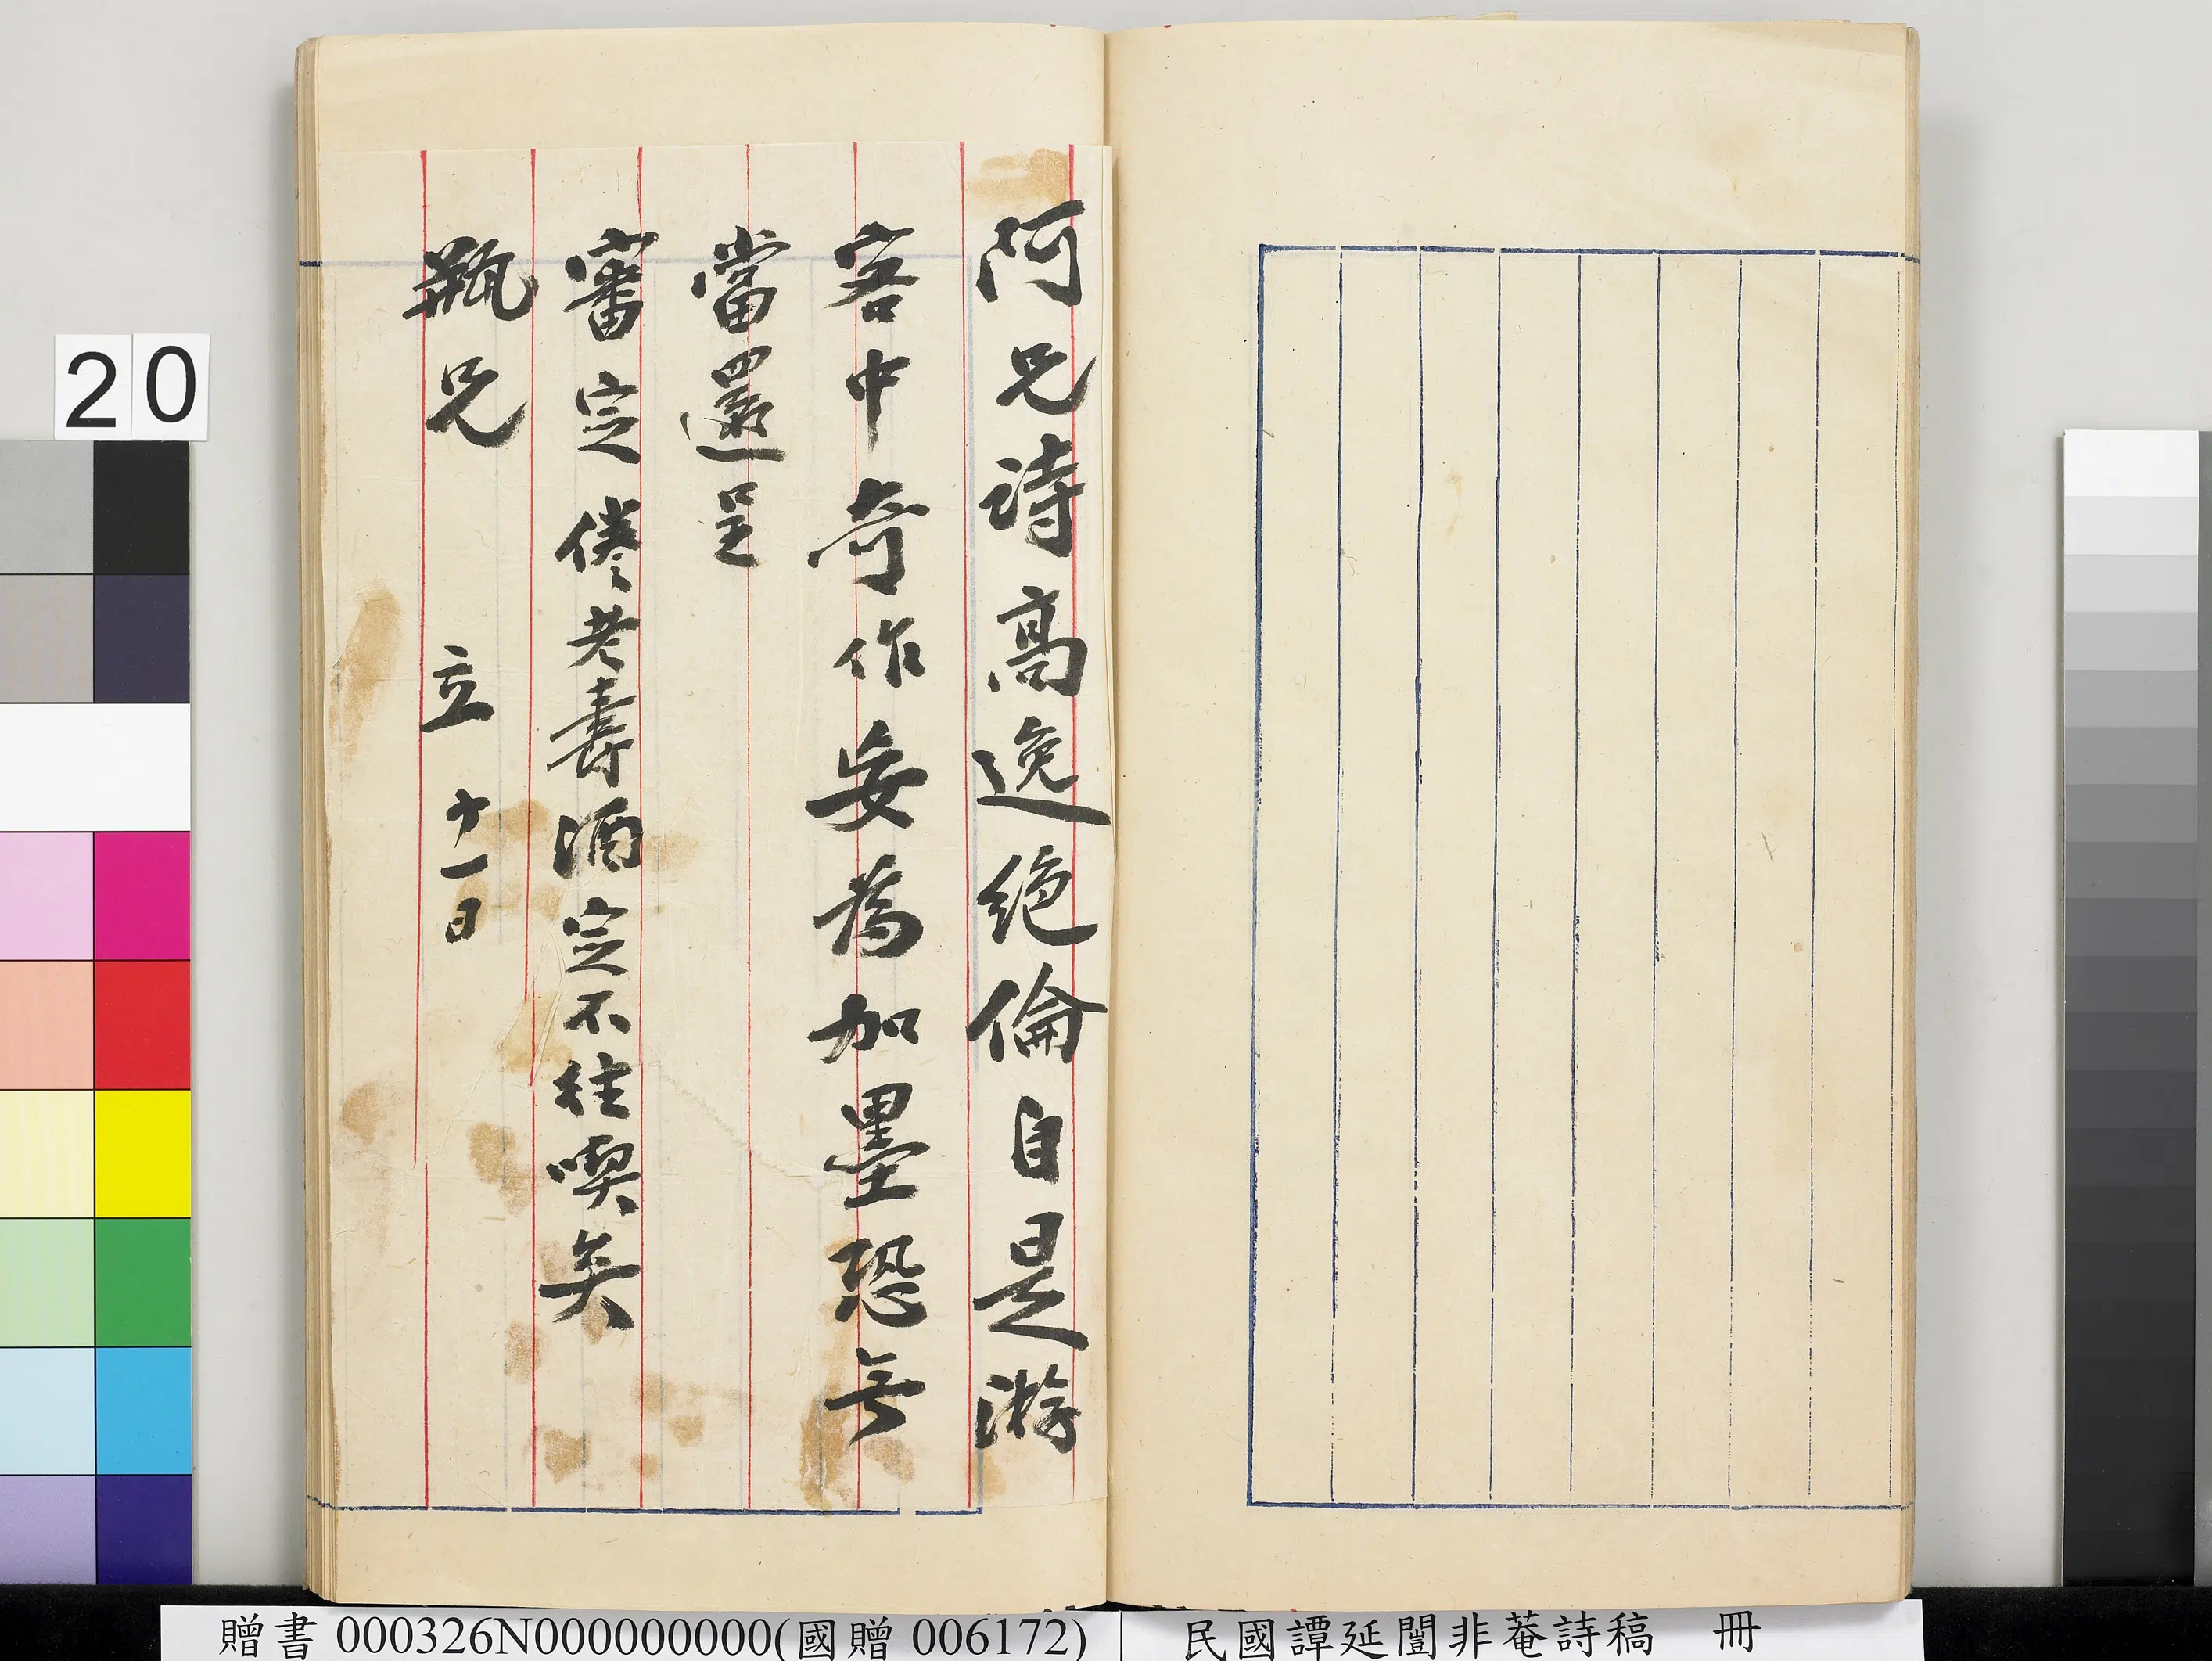 阿兄詩高逸絕倫自是游
客中奇作妄為加墨恐無
當還呈
審定倦老壽酒定不往喫矣
瓶兄 立 十一日
20
贈書 000326N000000000(國贈 006172) 民國譚延闓非菴詩稿 冊